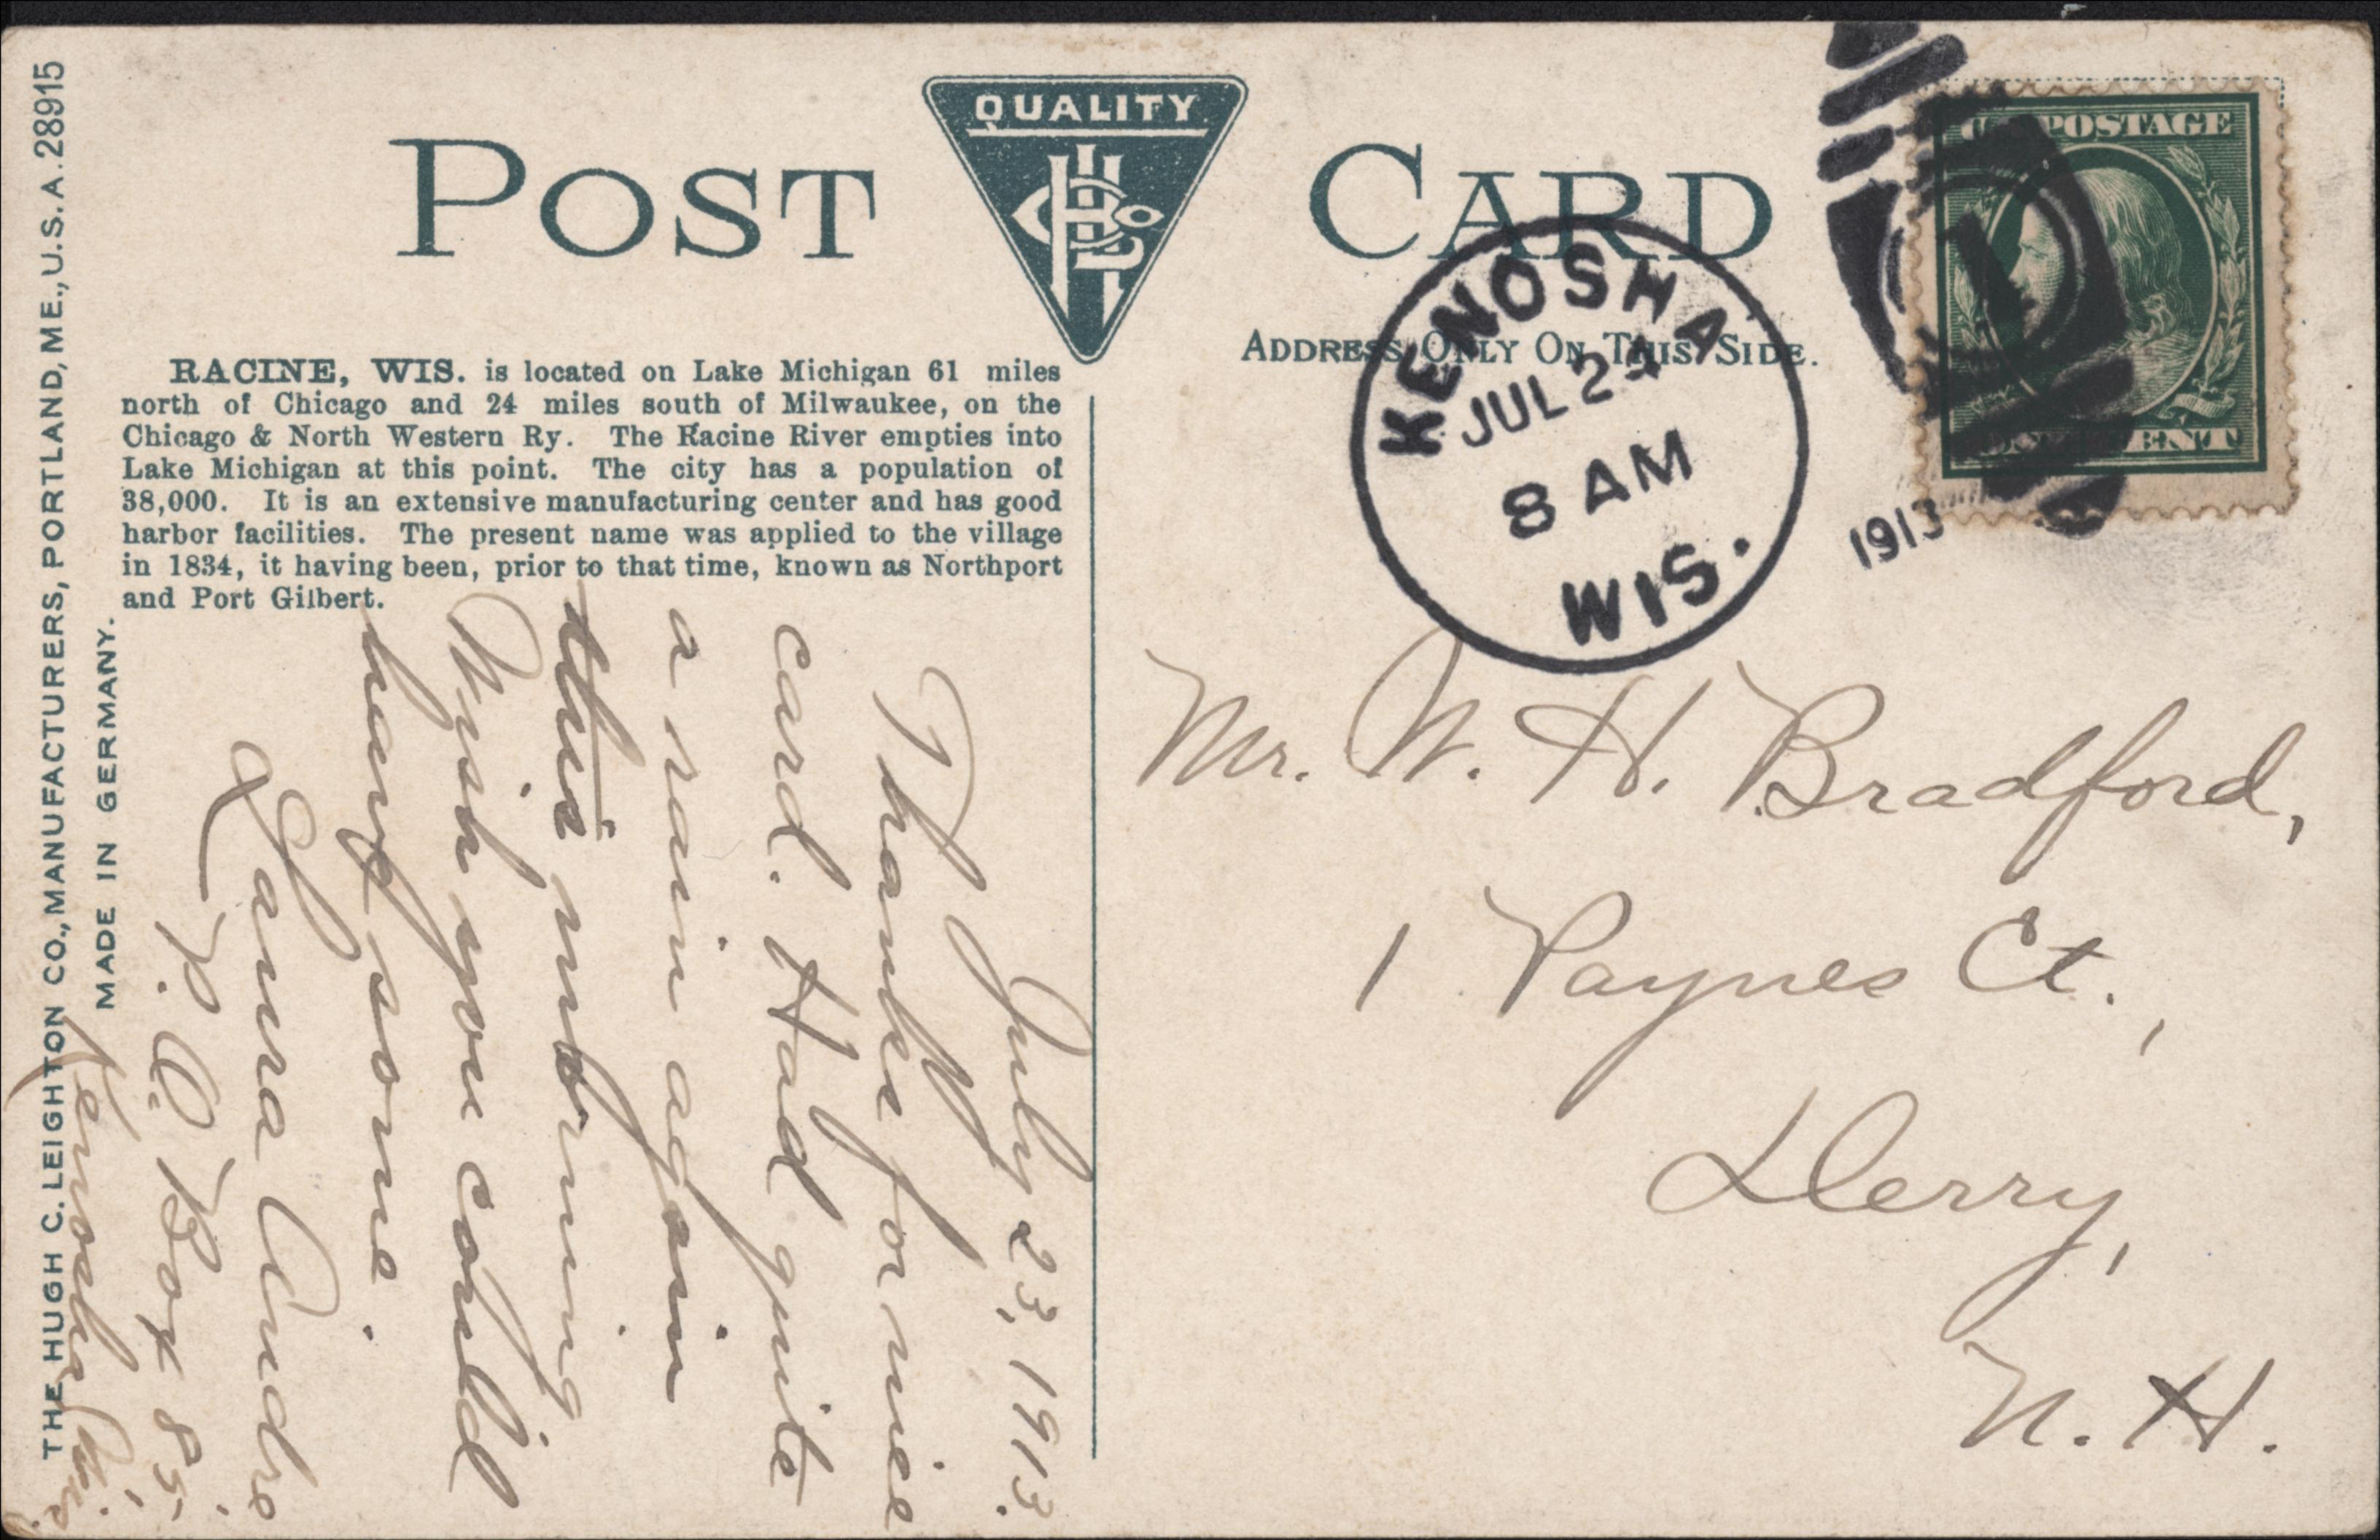 THE HUGH C. LEIGHTON CO., MANUFACTURERS, PORTLAND, ME., U.S.A. 28915
MADE IN GERMANY.
POST CARD
QUALITY
ADDRESS ONLY ON THIS SIDE.
RACINE, WIS. is located on Lake Michigan 61 miles
north of Chicago and 24 miles south of Milwaukee, on the
Chicago & North Western Ry. The Racine River empties into
Lake Michigan at this point. The city has a population of
38,000. It is an extensive manufacturing center and has good
harbor facilities. The present name was applied to the village
in 1834, it having been, prior to that time, known as Northport
and Port Gilbert.
July 23, 1913.
Thanks for nice
card. Had quite
a rain again
this morning
Wish you could
have some.
Laura Andre
P.O. Box 85,
Kenosha, Wis.
KENOSHA
JUL 24
8 AM
WIS.
1913
U.S. POSTAGE
1
ONE CENT
Mr. W. H. Bradford,
1 Paynes Ct.,
Derry,
N. H.